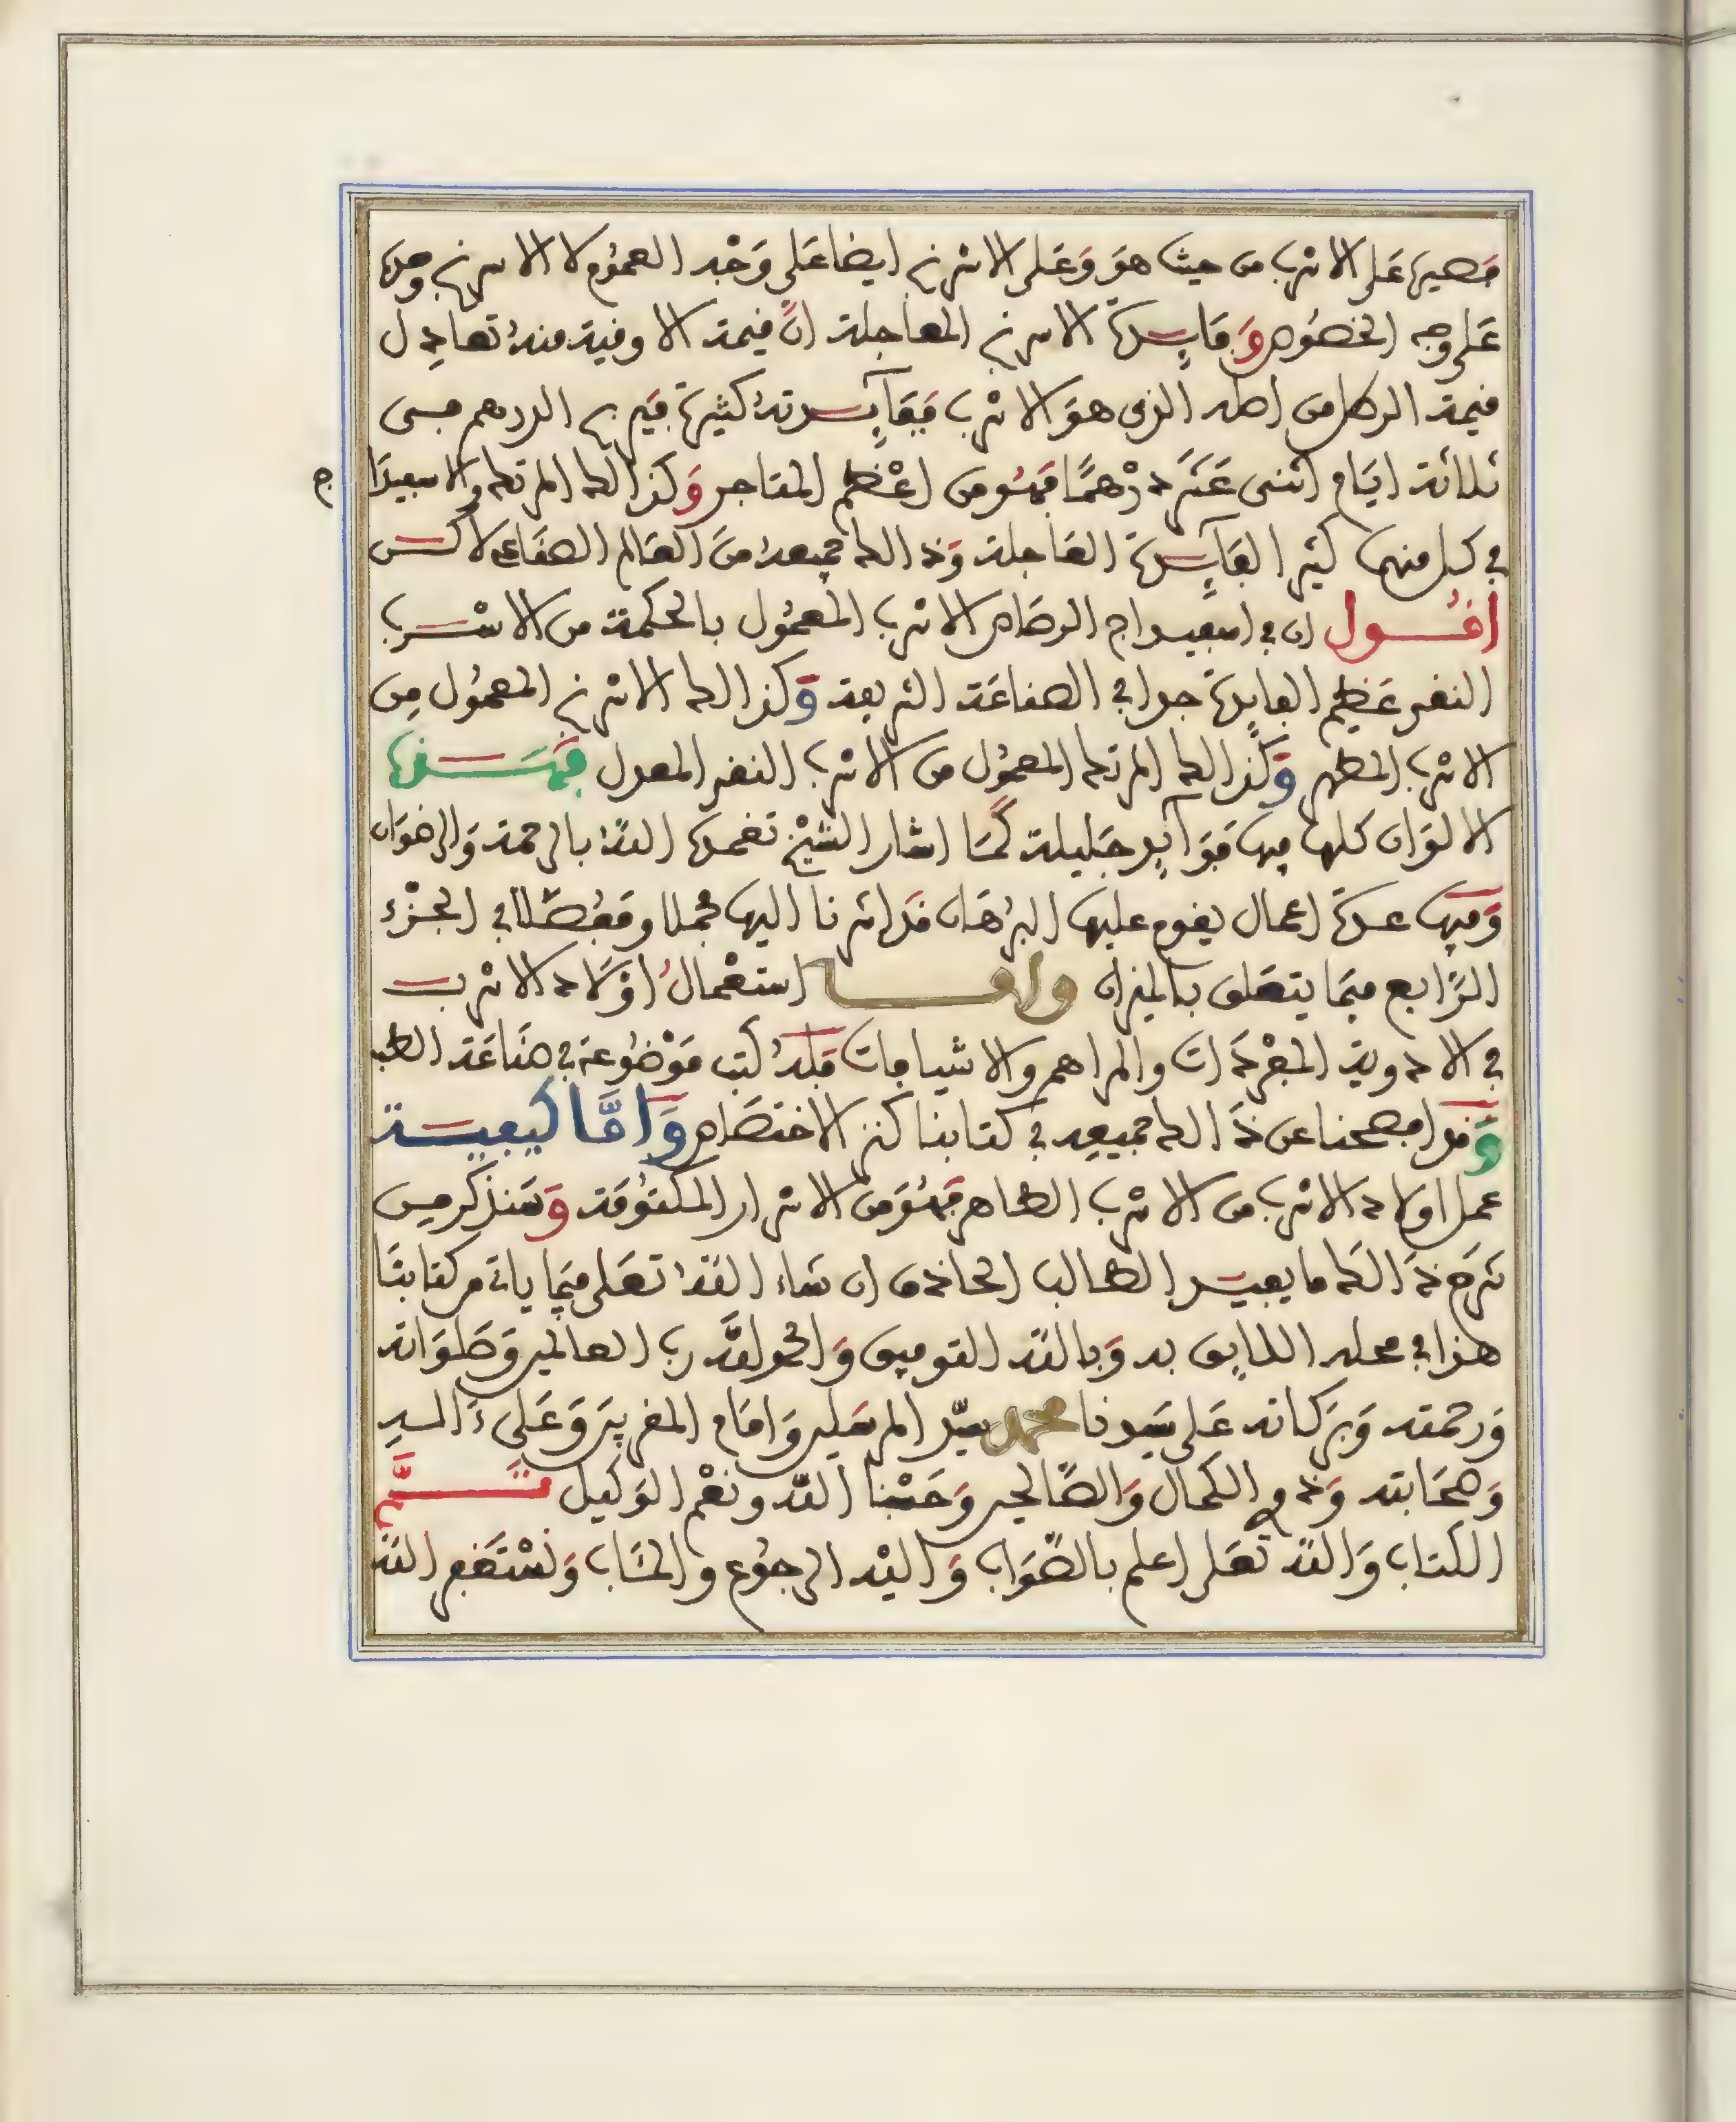 قصيرها على الاسرب من حيث هو وعلى الاسرنج ايضا على وجه العموم لا الاسرنج وحده
على وجه الخصوص وفايدة الاسرنج العاجلة ان قيمة الاوقية منه تعادل
قيمة الرطل من اصله الذي هو الاسرب ففايدته كثيرة فيربح الدرهم في
ثلاثة ايام اثنى عشر درهما فهو من اعظم المتاجر وكذالك المرتك والاسبيداج
في كل منهما كثير الفايدة العاجلة وذالك جميعه من العالم الصناعي لاكن
اقول ان في اسبيداج الرصاص الاسرب المعمول بالحكمة من الاسرب
النقي عظيم الفايدة جدا في الصناعة الشريفة وكذالك الاسرنج المعمول من
الاسرب المطهر وكذالك المرتك المعمول من الاسرب النقي المعدل فهذه
الالوان كلها فيها فوايد جليلة كما اشار الشيخ تغمده الله بالرحمة والرضوان
وفيها عدة اعمال يقوم عليها البرهان قد اشرنا اليها مجملا ومفصلا في الجزء
الرابع فيما يتعلق بالميزان واما استعمال اولاد الاسرب
في الادوية المفردات والمراهم والاشيافات فله كتب موضوعة في صناعة الطب
وقد افصحنا عن ذالك جميعه في كتابنا كنز الاختصاص واما كيفية
عمل اولاد الاسرب من الاسرب الطاهر فهو من الاسرار المكتومة وسنذكر من
شرح ذالك ما يفيد الطالب الحاذق ان شاء الله تعلى فيما ياتي من كتابنا
هذا في محله اللايق به وبالله التوفيق والحمد لله رب العالمين وصلواته
ورحمته وبركاته على سيدنا محمد سيد المرسلين وامام المقربين وعلى ءاله
وصحابته وذوي الكمال والصالحين وحسبنا الله ونعم الوكيل تم
الكتاب والله تعلى اعلم بالصواب واليه الرجوع والمئاب ونستغفر الله